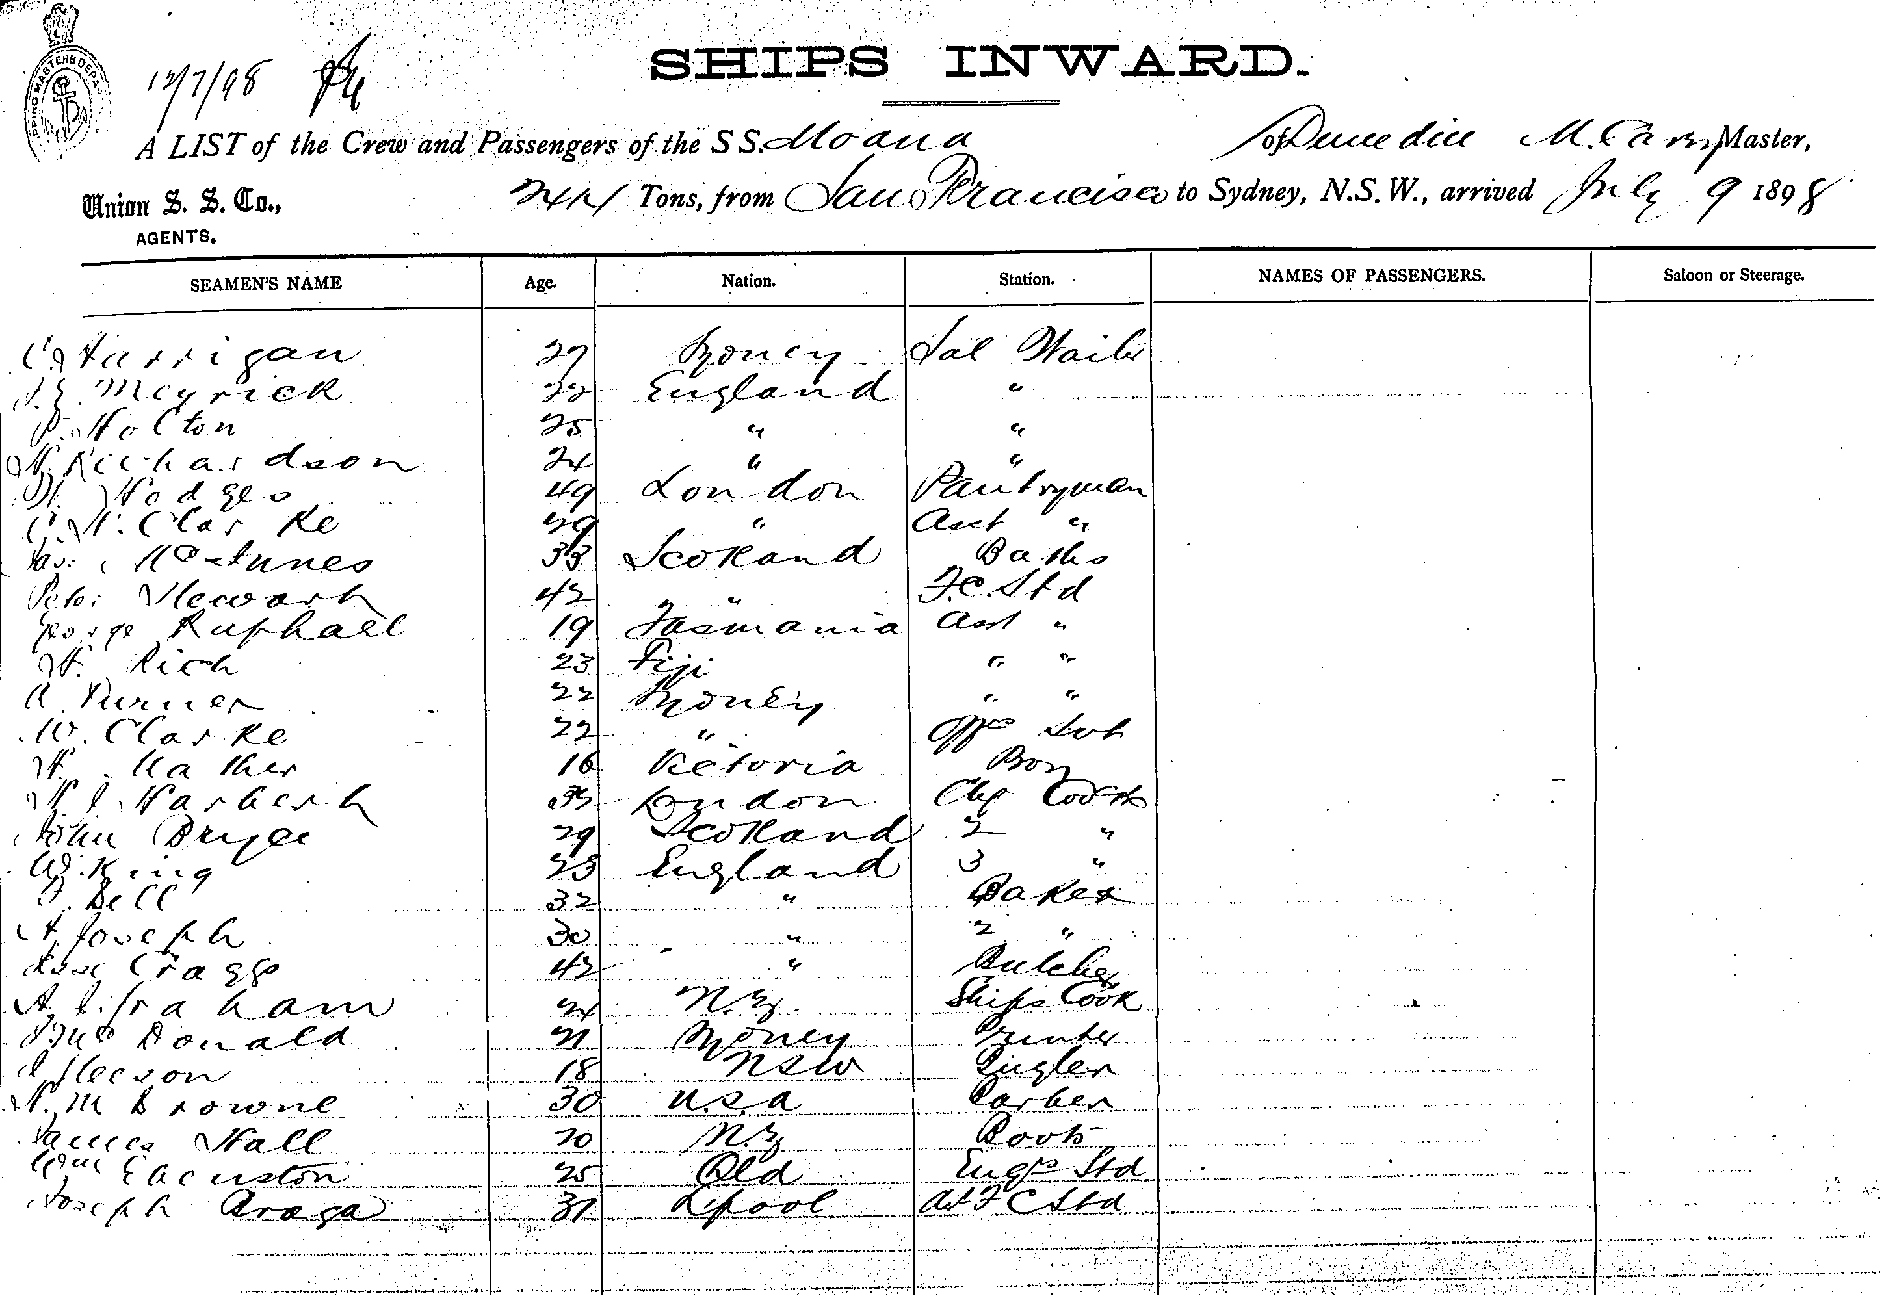 12/7/98
SHIPS INWARD.
A LIST of the Crew and Passengers of the S S. Moana of Dunedin M. Carey Master,
Union S. S. Co., AGENTS.
Tons, from San Francisco to Sydney, N.S.W., arrived July 9 1898
SEAMEN'S NAME Age. Nation. Station. NAMES OF PASSENGERS. Saloon or Steerage.
C. Harrigan 27 Sydney Sal Waiter
Meyrick 22 England "
P. Holton 25 " "
H. Richardson 24 " "
W. Hodges 49 London Pantryman
C. H. Clarke 29 " Asst "
Jas. McInnes 33 Scotland Baths
Peter Stewart 42 " " F.C. Std
George Raphael 19 Tasmania Asst "
H. Rich 23 Fiji " "
A. Turner 22 Sydney " "
W. Clarke 22 " Offs Svt
H. Mather 16 Victoria Boy
H. J. Harbert London Chf Cook
John Dryer 29 Scotland 2 "
W. King 23 England 3 "
Bell 32 " Baker
H. Joseph 30 " 2 "
Craggs 42 " Butcher
A. J. Graham 24 N.Z. Ships Cook
McDonald 21 Sydney Printer
J. Gleeson 18 NSW Bugler
H. M Browne 30 U.S.A Barber
James Hall 20 N.Z Boots
Wm 25 Qld Engrs Std
Joseph Braga 31 L'pool At F C Std